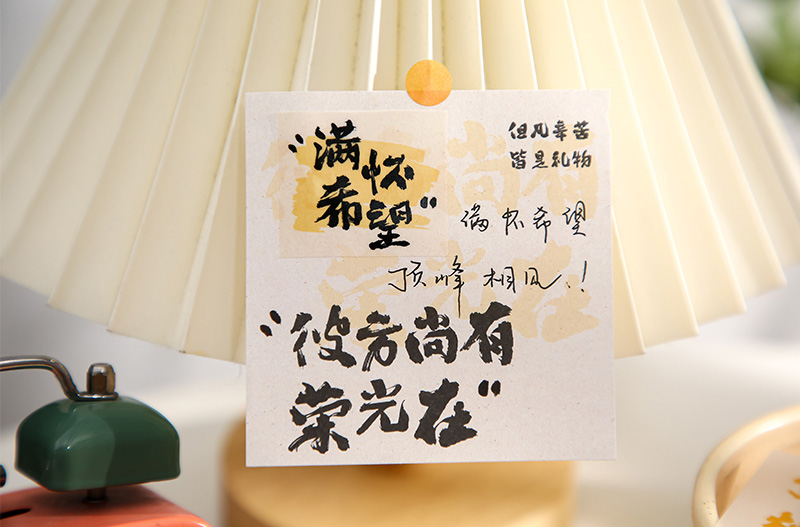 "满怀
希望"
但凡辛苦
皆是礼物
满怀希望
顶峰相见.!
"彼方尚有
荣光在"